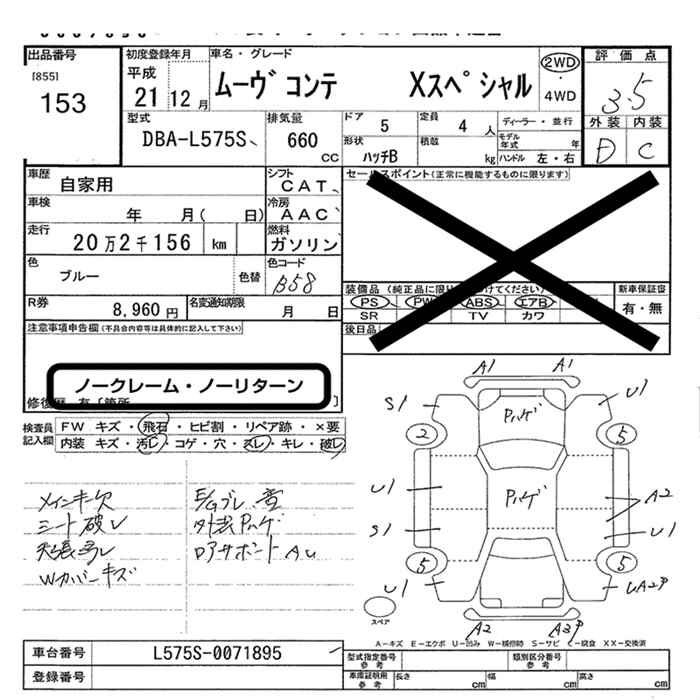 出品番号
[855]
153
初度登録年月
平成
21 12月
車名・グレード
ムーヴ コンテ Xスペシャル
2WD
・
4WD
評価点
3.5
外装 内装
D C
型式
DBA-L575S
排気量
660
CC
ドア
5
定員
4 人
ディーラー・並行
形状
ハッチB
積載
kg
モデル年式 年
ハンドル 左・右
車歴
自家用
シフト
CAT
車検
年 月( 日)
冷房
AAC
走行
20万2千156 km
燃料
ガソリン
色
ブルー
色替
色コード
B58
R券
8,960 円
名変通知期限
月 日
セールスポイント(正常に機能するものに限ります)
装備品(純正品に限り けてください)
新車保証書
PS PW ABS エアB
SR TV カワ
有・無
後日品
注意事項申告欄(不具合内容等は具体的に記入して下さい)
ノークレーム・ノーリターン
修復歴 有〔箇所 〕
検査員記入欄
FW キズ・飛石・ヒビ割・リペア跡・×要
内装 キズ・汚レ・コゲ・穴・スレ・キレ・破レ
メインキー欠
シート破レ
天張汚レ
Wカバーキズ
E/Gブレ、音
外装Pハゲ
ロアサポートAU
A1 A1
S1 Pハゲ U1
2 5
U1 Pハゲ A2
S1 U1
5 5
U1 UA2P
スペア
A2 A3P
A-キズ E-エクボ U-凹み W-補修跡 S-サビ C-腐食 XX-交換済
車台番号
L575S-0071895
登録番号
型式指定番号 参考
類別区分番号 参考
車庫証明用 参考
長さ cm 幅 cm 高さ cm